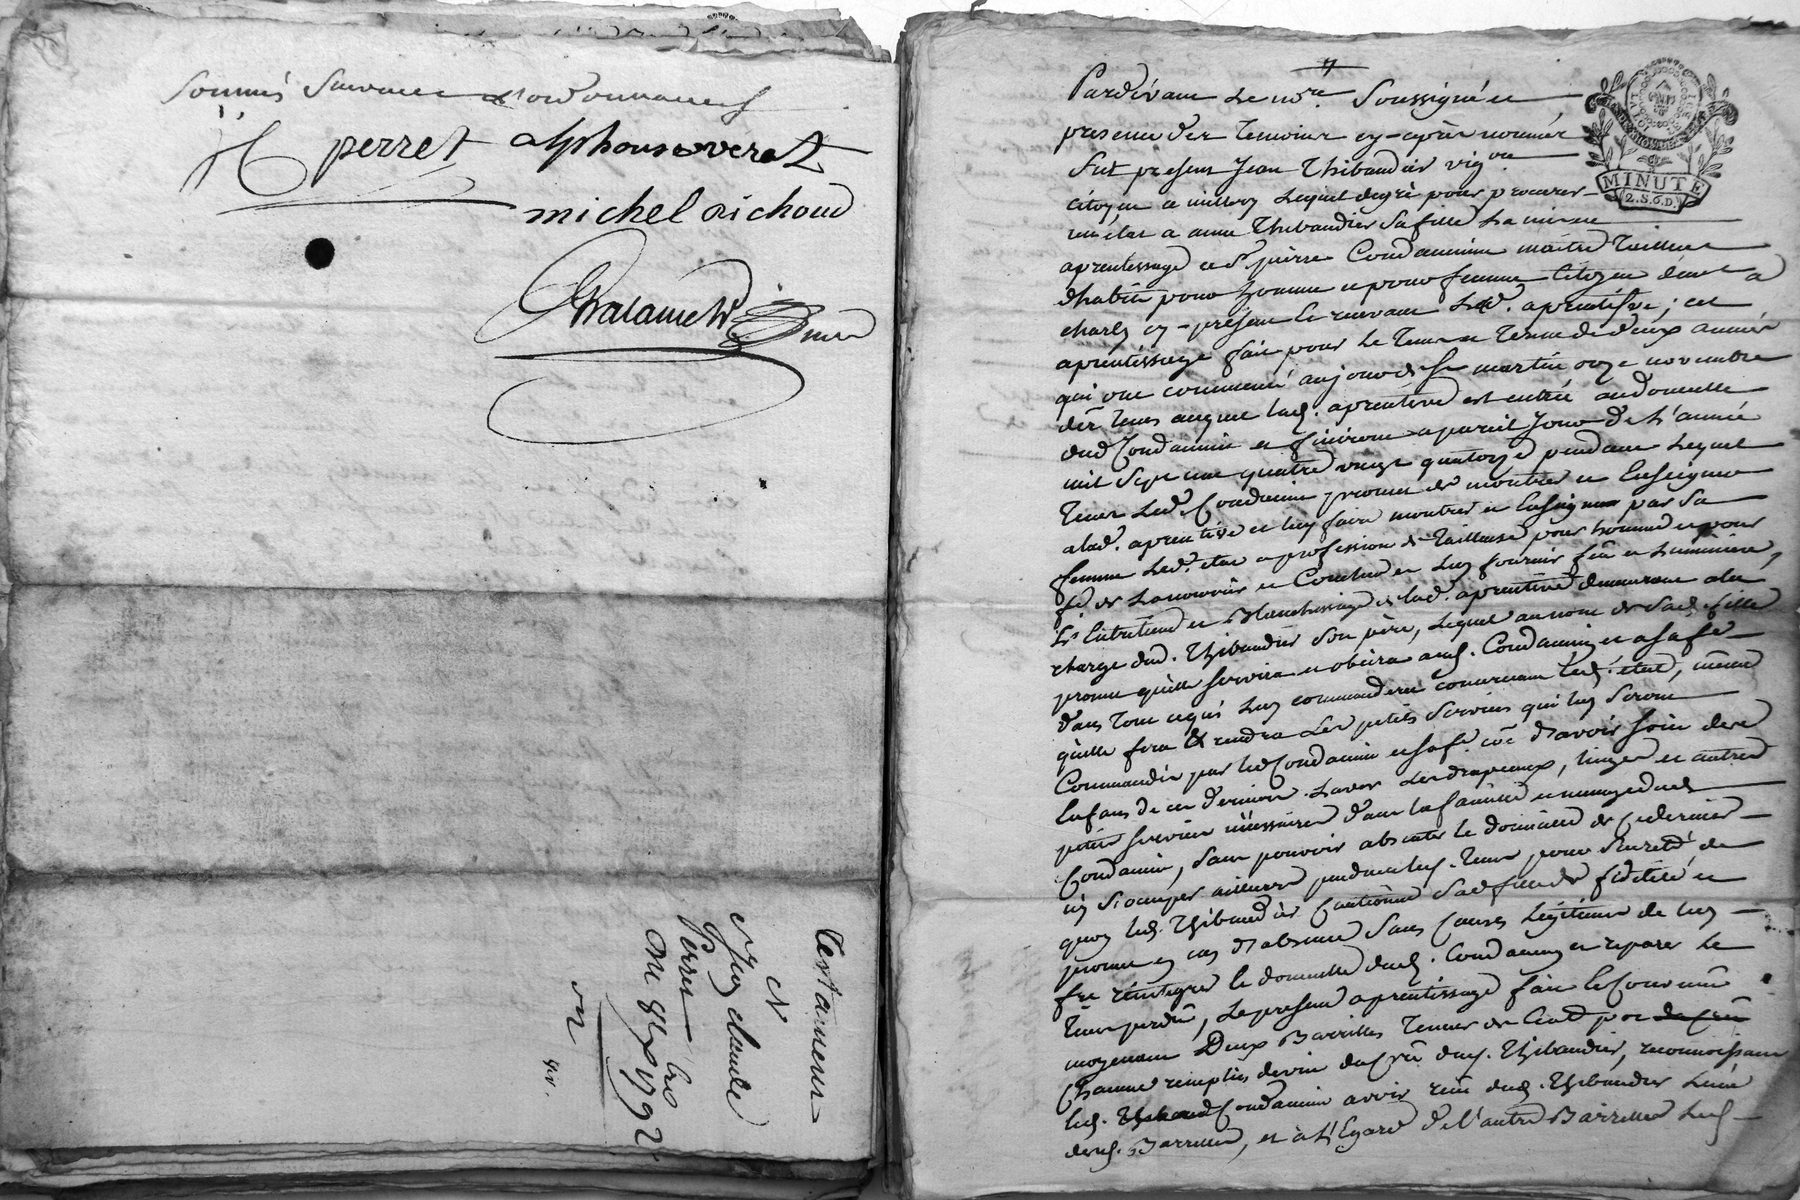 sommés suivant l'ordonnance
perret alphonse veret
michel richoud
testament
N
Jean claude
Perret
1792
MINUTE
2.S.6.D.
Pardevant Le nore. Soussigné et
presence des temoins cy-après nommés
fut present Jean Thibaudier vigon
citoyen a millery Lequel degré pour procurer
un état a anne Thibaudier sa fille La mise en
aprentissage ed Sr. pierre Condamin maitre Tailleur
d'habits pour homme et pour femme Citoyen demt. a
charly cy-present Le recevant Lad. aprentisse ; cet
aprentissage fait pour le tems et terme de deux années
qui ont commencé aujourd St martin onze novembre
dēr tems auquel lad. aprentisse est entrée au domicile
dud Condamin et finiront a pareil jour de L'année
mil sept cent quatre vingt quatorze pendant Lequel
tems Led. Condamin promet de montrer et Enseigner
a lad. aprentisse et luy faire montrer et enseigner par sa
femme Led. état et profession de Tailleuse pour homme et pour
fe de La nourrir et Coucher et luy fournir feu et Lumiere,
Ls Entretiens et Blanchissage de lad. aprentisse demeurant a la
charge dud. Thibaudier son père, Lequel au nom de Sad. fille
promet qu'elle servira et obeira aud. Condamin et a sa fe.
dans tout ce qui luy commanderont concernant led. état, même
qu'elle fera & rendra Les petits services qui luy seront
Commandés par led Condamin et sa fe. côe d'avoir soin des
Enfans de ce dernier. Laver Les drapeaux, linges et autres
petits services nécessaires dans la famille et menage dud
Condamin, sans pouvoir absenter le domicile de ce dernier
ny s'occuper ailleurs pendant led. tems, pour sureté de
quoy led. Thibaudier Cautionne Sad fille de fidélité et
promet en cas d'absence sans causes Légitimes de luy
fre réintegrer le domicile dud. Condamin et reparer le
tems perdu, Le present aprentissage fait & convenu
moyenant Deux Barrilles
Chacune remplies de vin du crû dud. Thibaudier, reconnoissant
led. Condamin avoir reçu dud. Thibaudier L'une
desd. Barrilles, et à L'Egard de l'autre Barrille Led